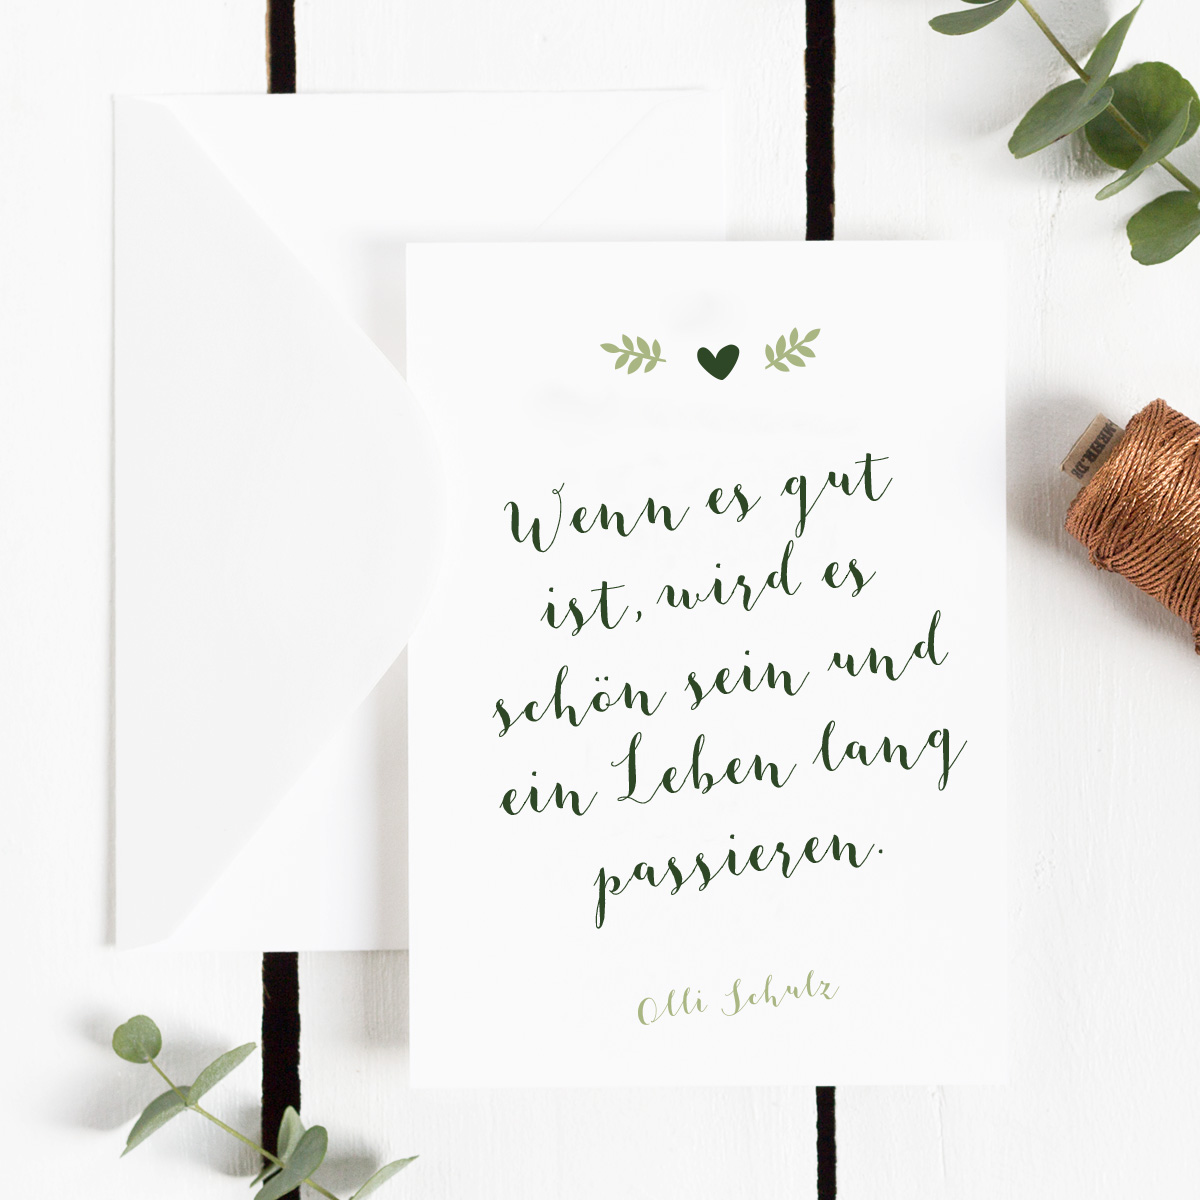 Wenn es gut
ist, wird es
schön sein und
ein Leben lang
passieren.
Olli Schulz